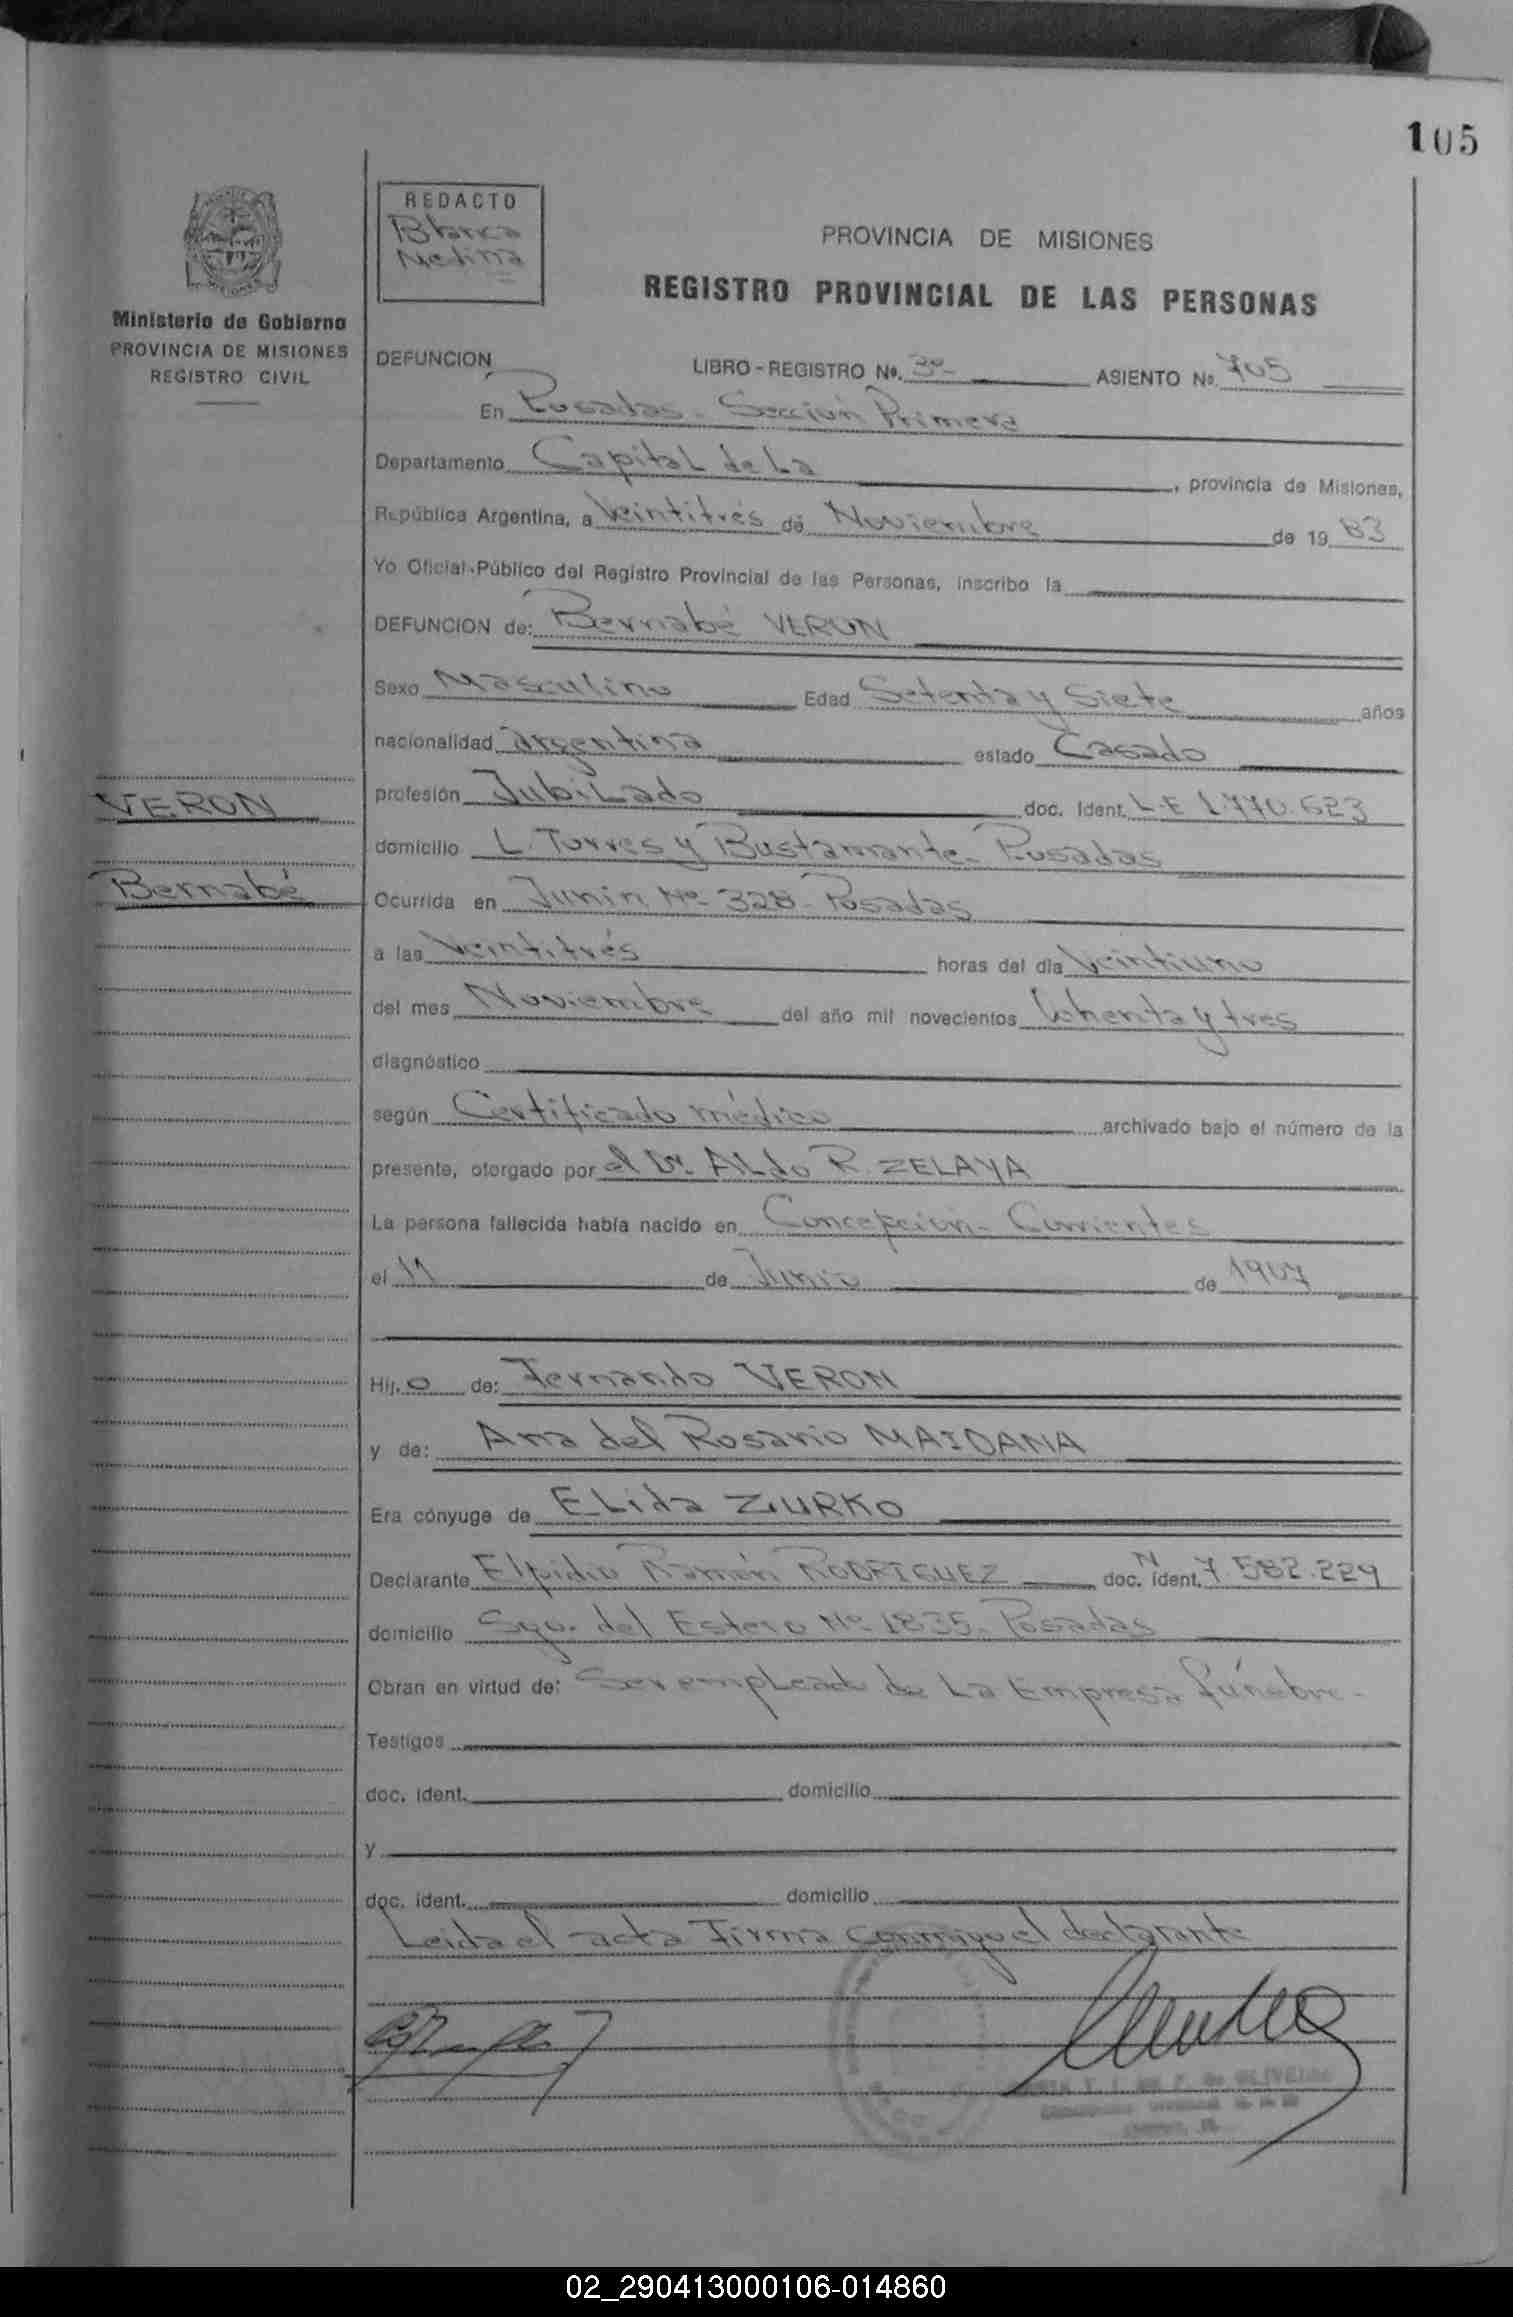 105
REDACTO
Blanca
Medina
PROVINCIA DE MISIONES
REGISTRO PROVINCIAL DE LAS PERSONAS
Ministerio de Gobierno
PROVINCIA DE MISIONES
REGISTRO CIVIL
DEFUNCION LIBRO - REGISTRO No. 3º- ASIENTO No. 705
En Posadas - Sección Primera
Departamento Capital de La , provincia de Misiones,
República Argentina, a Veintitrés de Noviembre de 19 83
Yo Oficial Público del Registro Provincial de las Personas, inscribo la
DEFUNCION de: Bernabé VERON
Sexo Masculino Edad Setenta y Siete años
nacionalidad argentina estado Casado
profesión Jubilado doc. Ident. L.E 1.770.623
VERON
domicilio L. Torres y Bustamante - Posadas
Bernabé
Ocurrida en Junín Nº 328 - Posadas
a las Veintitrés horas del día Veintiuno
del mes Noviembre del año mil novecientos Ochenta y tres
diagnóstico
según Certificado médico archivado bajo el número de la
presente, otorgado por el Dr. ALdo R. ZELAYA
La persona fallecida había nacido en Concepción - Corrientes
el 11 de Junio de 1907
Hij. o de: Fernando VERON
y de: Ana del Rosario MAIDANA
Era cónyuge de ELida ZIURKO
Declarante Elpidio Ramón RODRIGUEZ doc. ident. N 7.582.229
domicilio Sgo. del Estero Nº 1835 - Posadas
Obran en virtud de: Ser empleado de La Empresa fúnebre -
Testigos
doc. ident. domicilio
y
doc. ident. domicilio
Leida el acta Firma conmigo el declarante
02_290413000106-014860